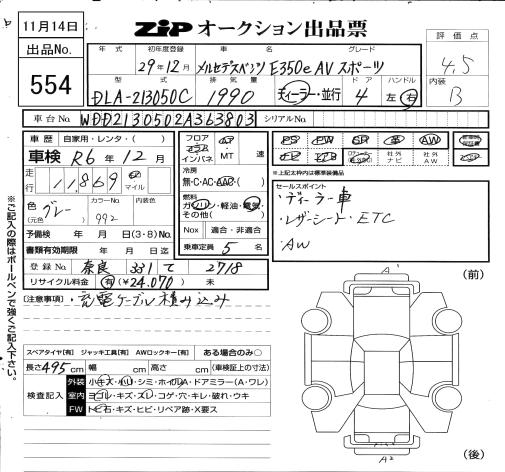 11月14日
ZiP オークション出品票
出品No.
554
評価点
4.5
内装
B
年式 初年度登録 車名 グレード
29年12月 メルセデスベンツ E350e AVスポーツ
型式 排気量 ドア ハンドル
DLA-213050C 1990 ディーラー・並行 4 左 右
車台No. WDD2130502A363803 シリアルNo.
車歴 自家用・レンタ・( )
車検 R6年12月
走行 11,869 km マイル
色(元色) グレー カラーNo. 992 内装色
予備検 年 月 日(3・8)No.
書類有効期限 年 月 日迄
登録No. 奈良 331 て 2718
リサイクル料金 有(¥24.070) 未
フロア コラム インパネ AT MT 速
冷房 無・C・AC・AAC・( )
燃料 ガソリン・軽油・電気・その他( )
Nox 適合・非適合
乗車定員 5 名
PS PW SR 革 AW
社外ナビ 社外AW
※上記太枠内は標準装備品
セールスポイント
・ディーラー車
・レザーシート・ETC
・AW
注意事項・ 充電ケーブル積み込み
※ご記入の際はボールペンで強くご記入下さい。
スペアタイヤ[有] ジャッキ工具[有] AWロックキー[有] ある場合のみ○
長さ 495 cm 幅 cm 高さ cm (車検証上の寸法)
検査記入
外装 小キズ・小凹・シミ・ホイルA・ドアミラー(A・ワレ)
室内 ヨゴレ・キズ・スレ・コゲ・穴・キレ・破れ・ウキ
FW トビ石・キズ・ヒビ・リペア跡・X要ス
(前)
A1
A2
(後)